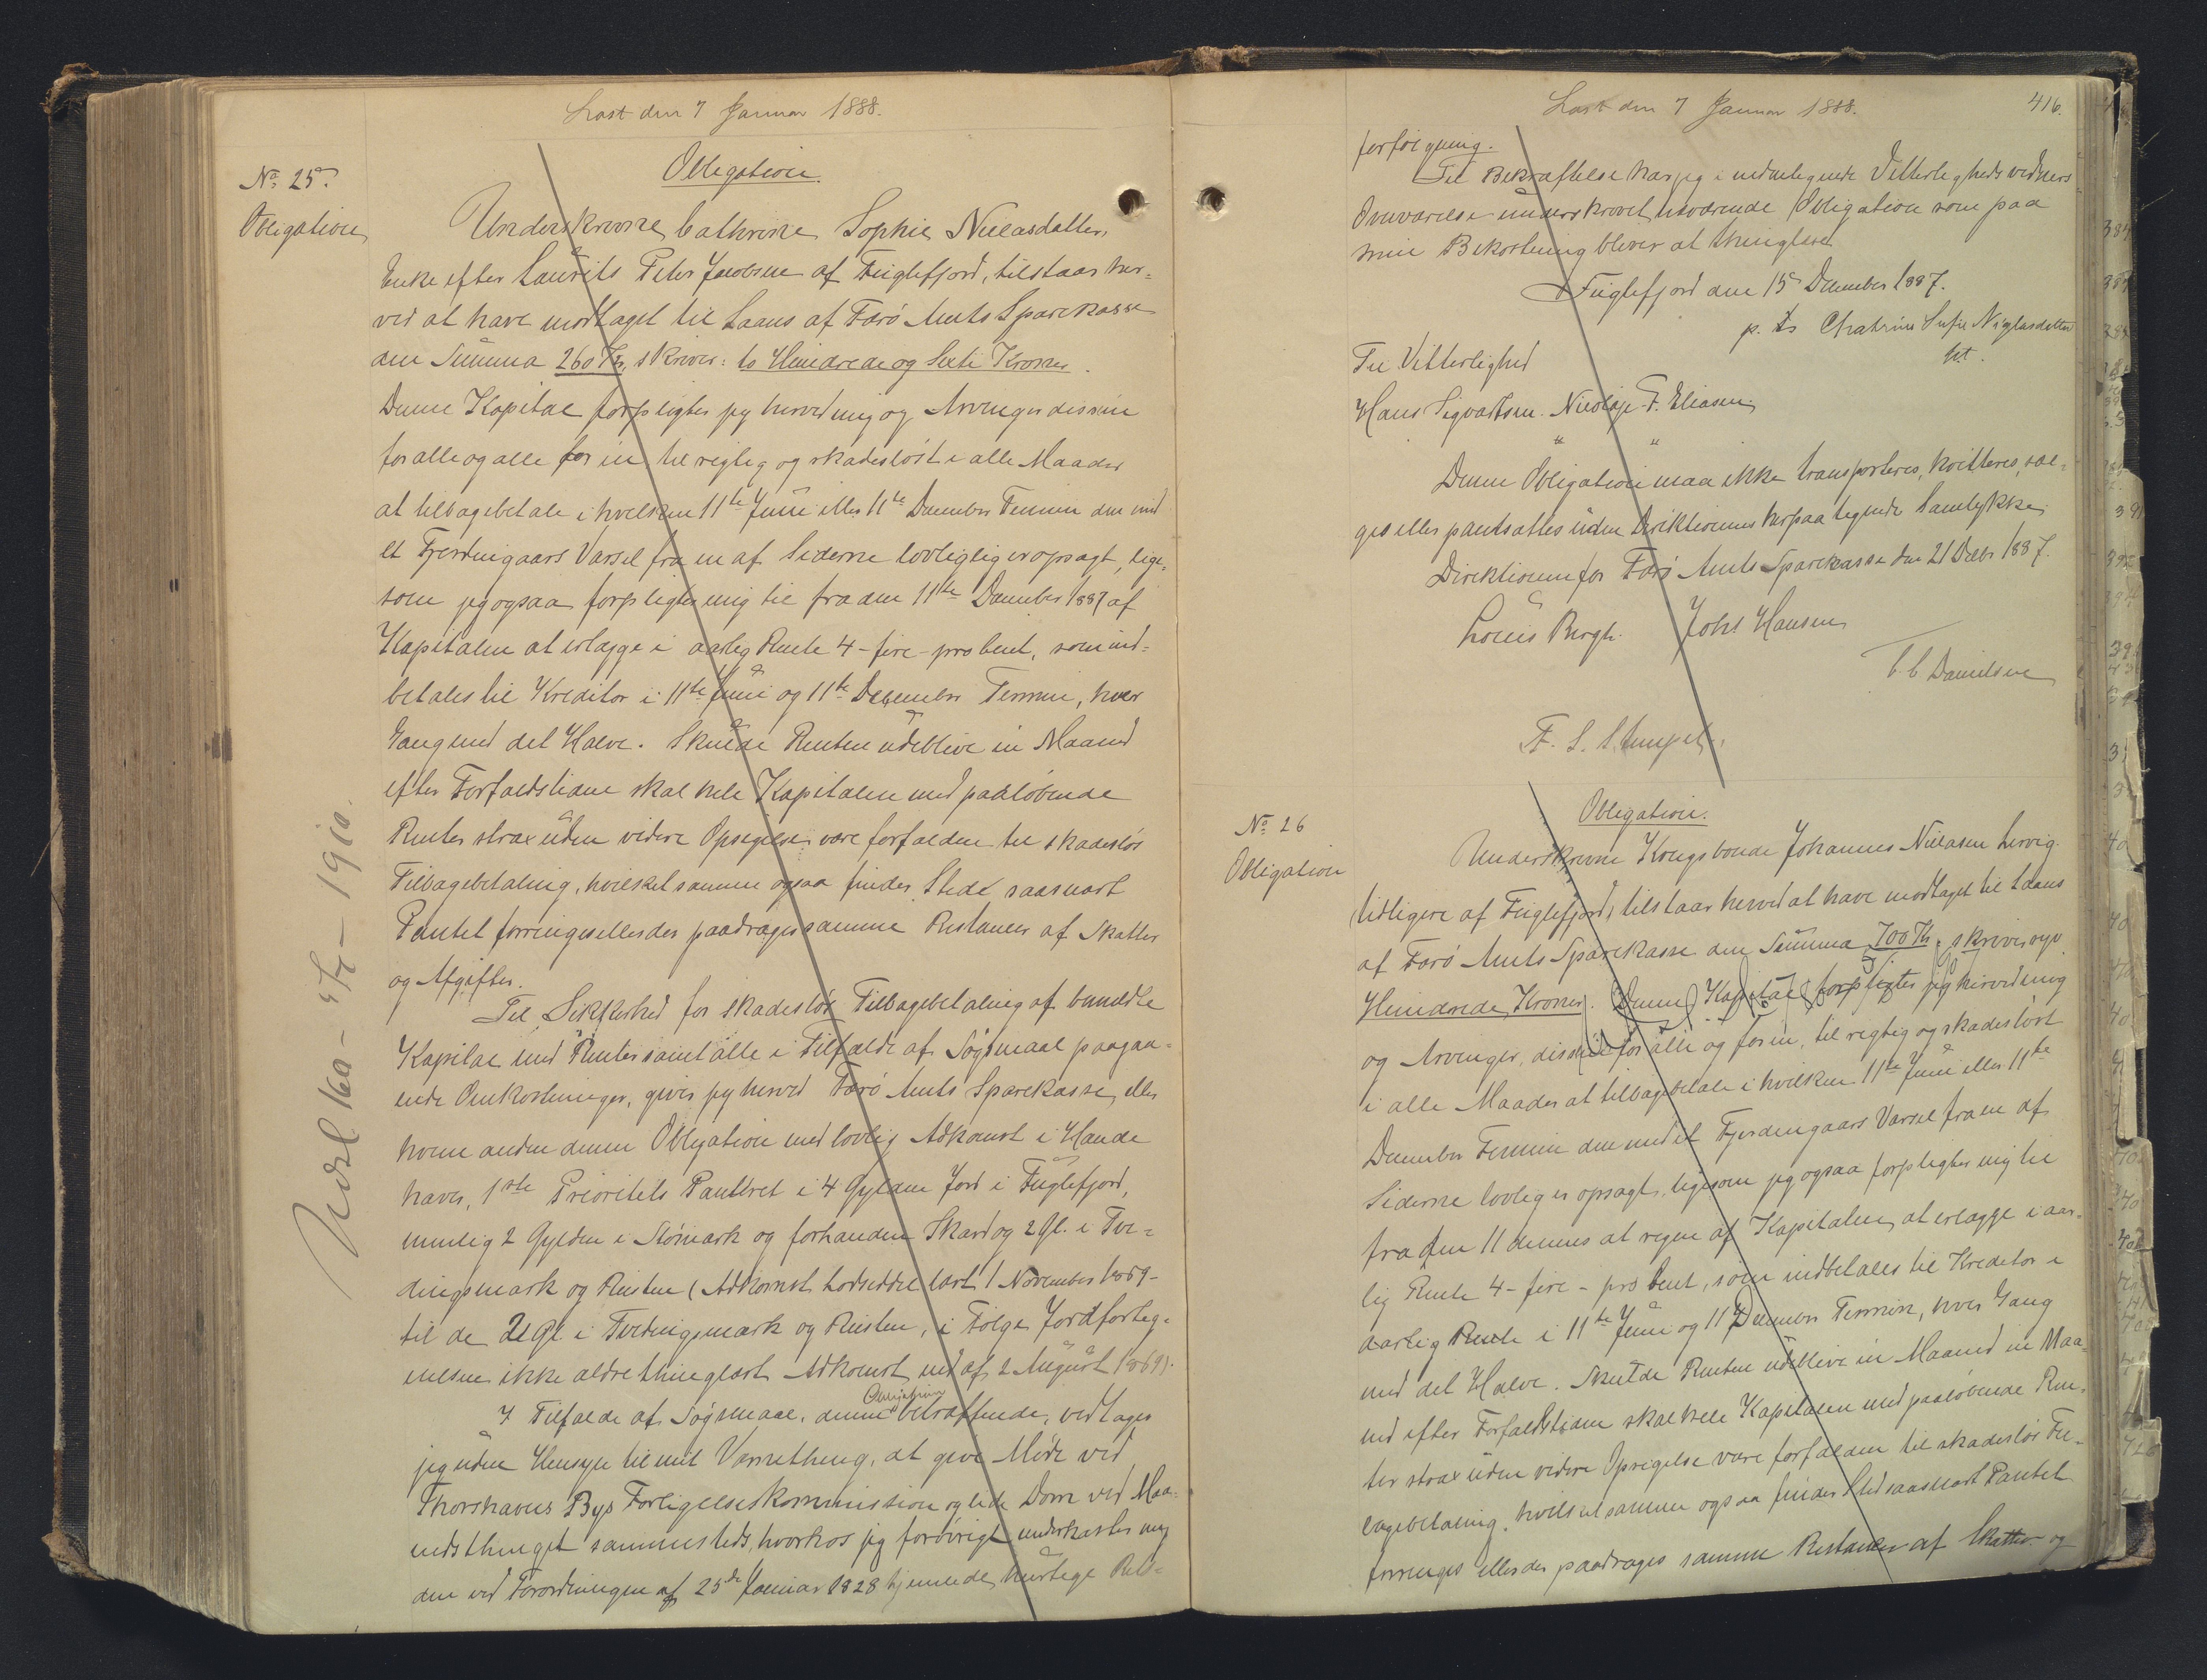 Læst den 7 Januar 1888.
No. 25.
Obligation
Obligation.
Underskrevne Cathrine Sophie Nielasdatter,
Enke efter Laurits Peter Jacobsen af Fuglefjord, tilstaar her-
ved at have modtaget til Laans af Færö Amts Sparekasse
den Summa 260 Kr, skriver: to Hundrede og Sexti Kroner.
Denne Kapital forpligter jeg herved mig og Arvinger disse
for alle og alle for en til rigtig og skadesløst i alle Maader
at tilbagebetale i hvilken 11te Juni eller 11te December Termin den med
et Fjerdingaars Varsel fra en af Siderne lovligtig er opsagt, lige-
som jeg ogsaa forpligter mig til fra den 11te December 1887 af
Kapitalen at erlægge i aarlig Rente 4 - fire - pro Cent, som ind-
betales til Kreditor i 11te Juni og 11te December Termin, hver
Gang med det Halve. Skulde Renten udeblive en Maaned
efter Forfaldstiden skal hele Kapitalen med paaløbende
Renter strax uden videre Opsigelse være forfalden til skadesløs
Tilbagebetaling, hvilket samme ogsaa finder Sted saasnart
Pantet forringes eller der paadrages samme Restancer af Skatter
og Afgifter.
Til Sikkerhed for skadesløs Tilbagebetaling af bemeldte
Kapital med Renter samt alle i Tilfælde af Søgsmaal paagaa-
ende Omkostninger, giver jeg herved Færö Amts Sparekasse, eller
hvem anden denne Obligation med lovlig Adkomst i Hænde
haver, 1ste Prioritets Panteret i 4 Gylden Jord i Fuglefjord,
nemlig 2 Gylden i Stömark og forhanden Skard og 2 Gl. i Tve-
dingsmark og Risten (Adkomst Lodseddel læst 1 November 1869 -
til de 2 Gl i Tvedingsmark og Risten, i Følge Jordforteg-
nelsen ikke ældre thinglæst Adkomst end af 2 August 1869).
I Tilfælde af Søgsmaal, denne Obligation betræffende, vedtager
jeg uden Hensyn til mit Værnething, at give Møde ved
Thorshavns Bys Forligelseskommission og lide Dom ved Maa-
nedsthinget sammesteds, hvorhos jeg forøvrigt underkaster mig
den ved Forordningen af 25de Januar 1828 hjemlede hurtige Rets-
Læst den 7 Januar 1888.
416.
forfølgning.
Til Bekræftelse har jeg i undertegnede Vitterlighedsvidners
Overværelse underskrevet nærværende Obligation som paa
min Bekostning bliver at thinglæse.
Fuglefjord den 15 December 1887.
p. ts Chatrine Sufie Niglasdatter
Til Vitterlighed
Hans Sigvartsen. Nicolaje F. Eliasen
Denne Obligation maa ikke transporteres, kvitteres, sæl-
ges eller pantsættes uden Direktionens herpaa tegnede Samtykke
Direktionen for Færö Amts Sparekasse den 21 Decbr 1887.
Louis Bergh. Johs Hansen
C C Danielsen
F. S. Stempel,
No. 26
Obligation
Obligation.
Underskrevne Kongsbonde Johannes Nielasen Lervig
tidligere af Fuglefjord, tilstaar herved at have modtaget til Laans
af Færö Amts Sparekasse den Summa 700 Kr, skriver syv
Hundrede Kroner. Denne Kapital forpligter jeg herved mig
og Arvinger, disse for alle og for en, til rigtig og skadesløst
i alle Maader at tilbagebetale i hvilken 11te Juni eller 11te
December Termin den med et Fjerdingaars Varsel fra en af
Siderne lovlig er opsagt, ligesom jeg ogsaa forpligter mig til
fra den 11 dennes at regne af Kapitalen at erlægge i aar-
lig Rente 4 - fire - pro Cent, som indbetales til Kreditor i
aarlig Rente i 11te Juni og 11 December Termin, hver Gang
med det Halve. Skulde Renten udeblive en Maaned en Maa-
ned efter Forfaldstiden skal hele Kapitalen med paaløbende Ren-
ter strax uden videre Opsigelse være forfalden til skadesløs Til-
bagebetaling, hvilket samme ogsaa finder Sted saasnart Pantet
forringes eller der paadrages samme Restancer af Skatter og